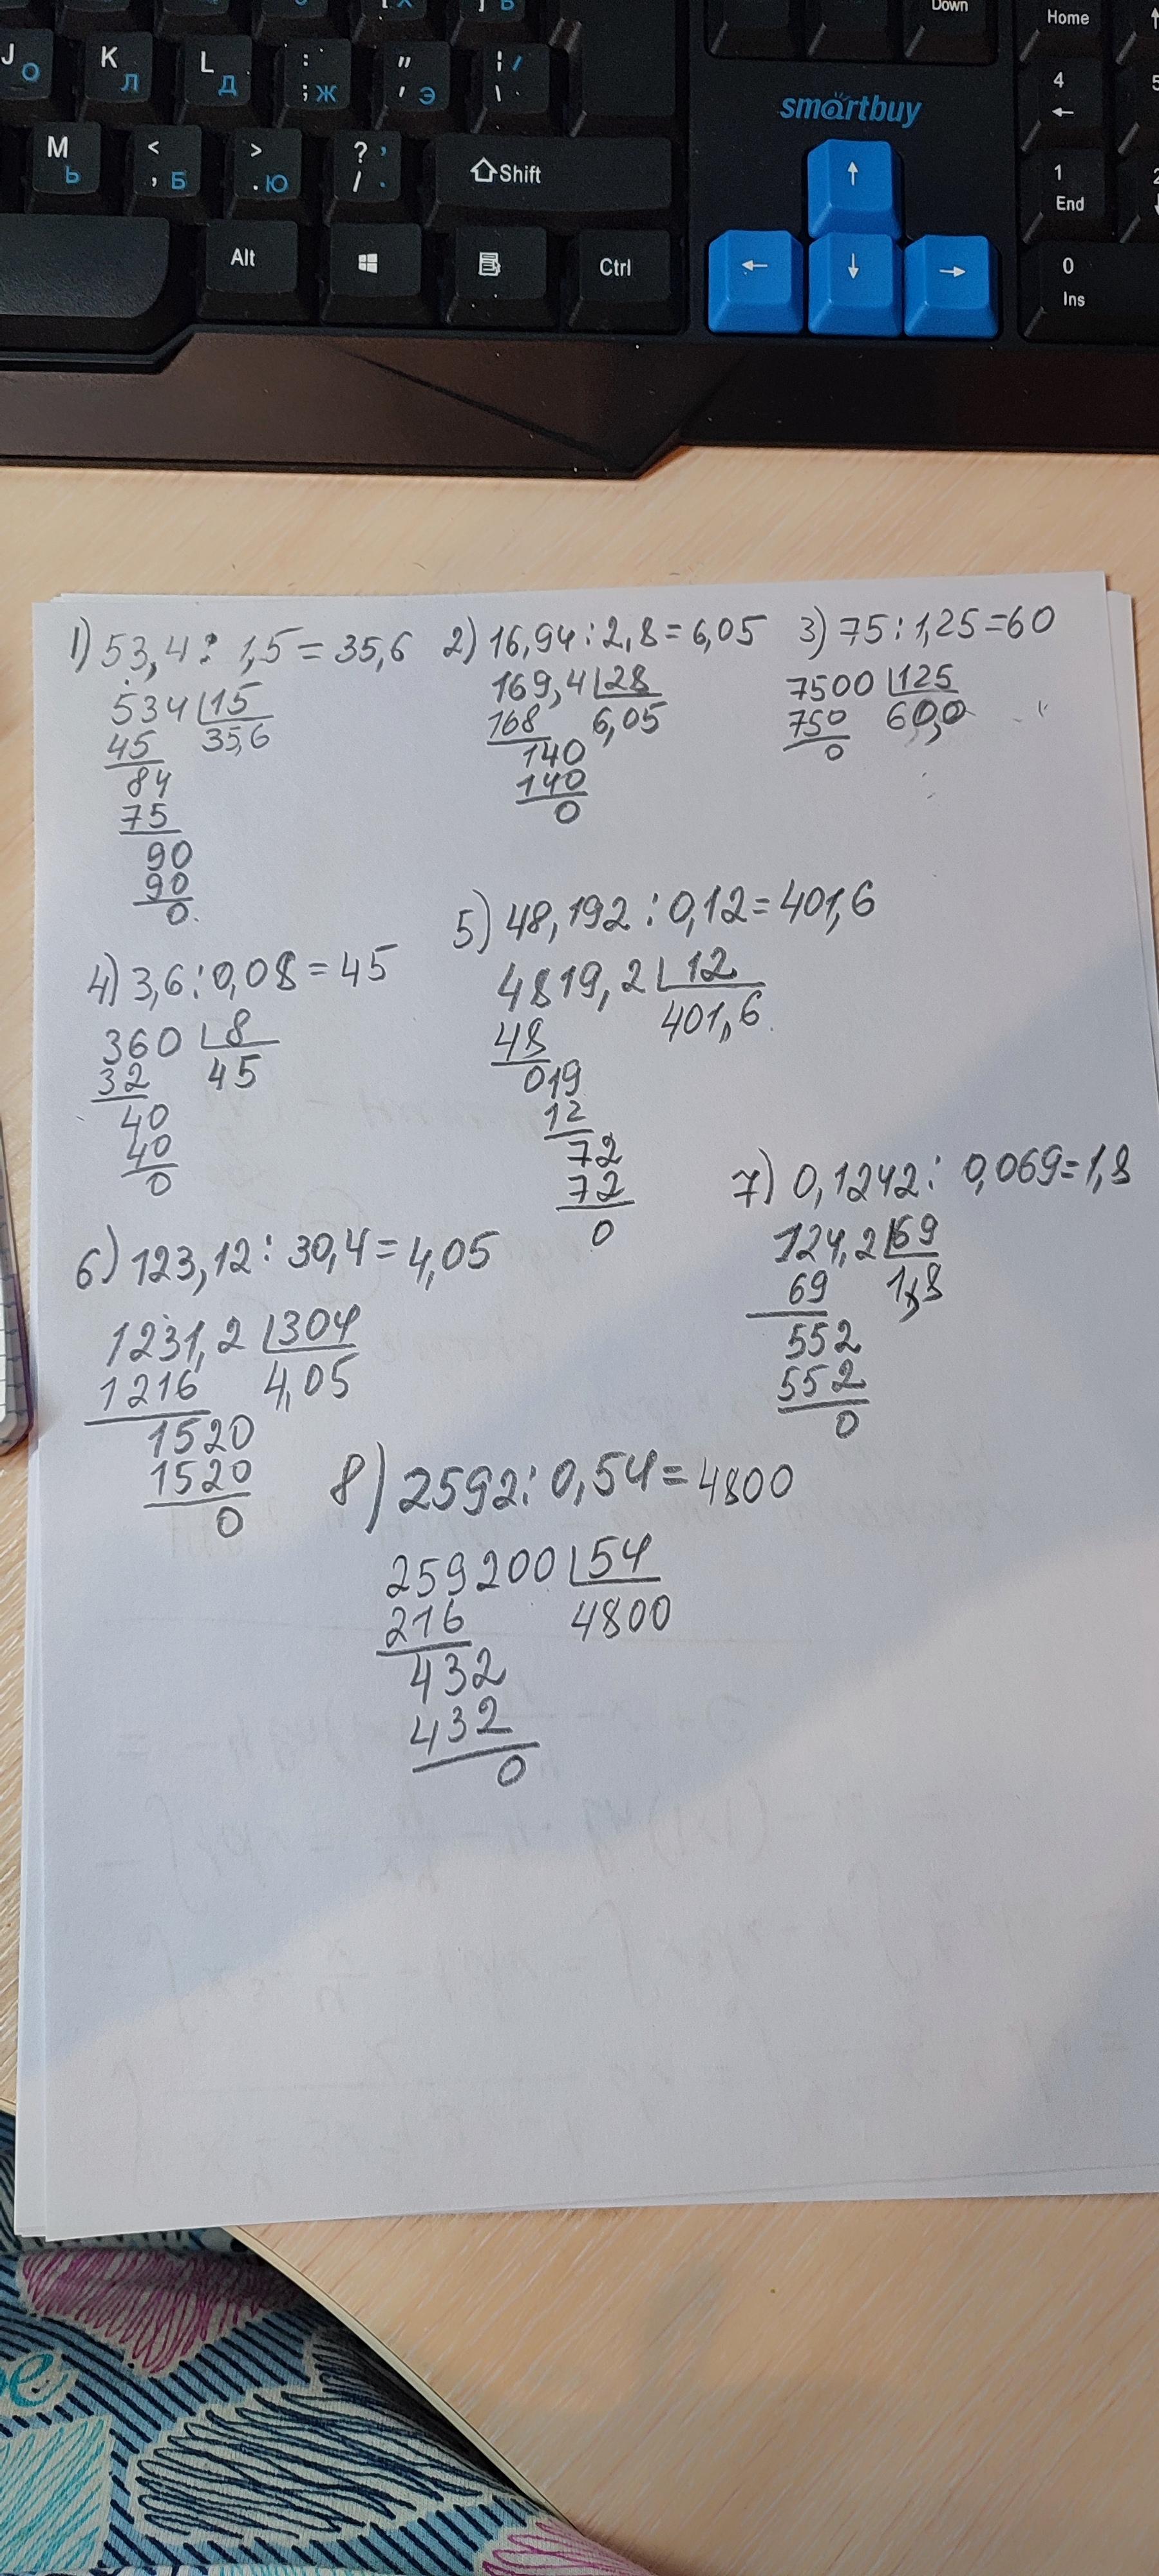 Down
Home
J О
K Л
L Д
: ; Ж
" ' Э
¦ / \ .
4 ←
5
smartbuy
M Ь
< , Б
> . Ю
? , / .
Shift
↑
1 End
2
Alt
Ctrl
←
↓
→
0 Ins
1) 53,4 : 1,5 = 35,6
534 15
45 35,6
84
75
90
90
0.
2) 16,94 : 2,8 = 6,05
169,4 28
168 6,05
140
140
0
3) 75 : 1,25 = 60
7500 125
750 60,0
0
4) 3,6 : 0,08 = 45
360 8
32 45
40
40
0
5) 48,192 : 0,12 = 401,6
4819,2 12
48 401,6
019
12
72
72
0
6) 123,12 : 30,4 = 4,05
1231,2 304
1216 4,05
1520
1520
0
7) 0,1242 : 0,069 = 1,8
124,2 69
69 1,8
552
552
0
8) 2592 : 0,54 = 4800
259200 54
216 4800
432
432
0